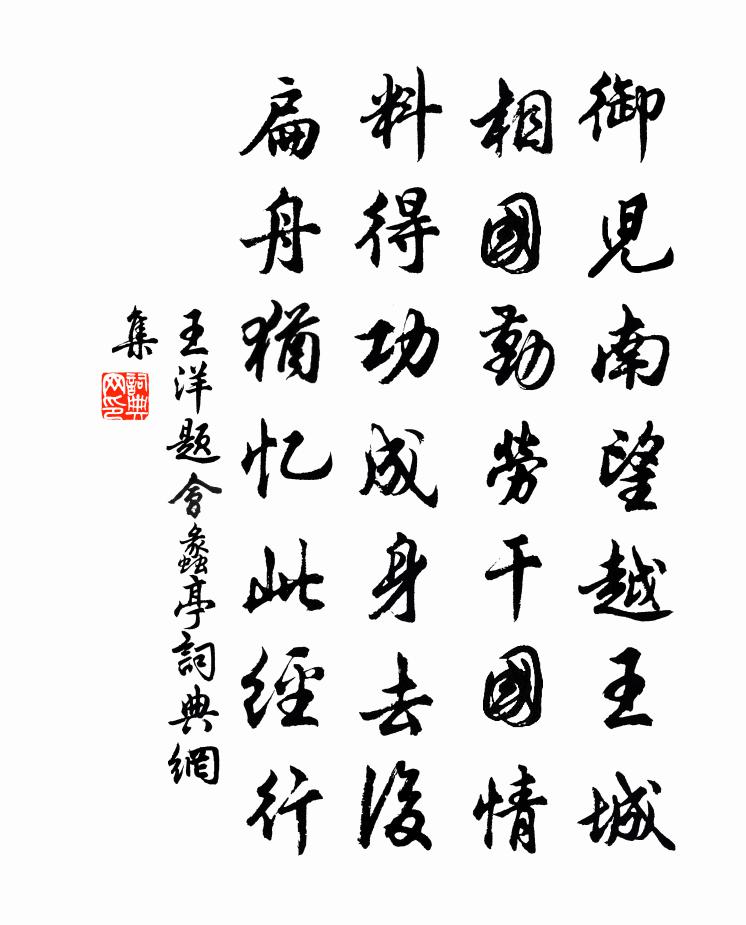 御児南望越王城
相國勤勞干國情
料得功成身去後
扁舟猶忆此經行
王洋題會蠡亭詞典網
集
詞典
网印